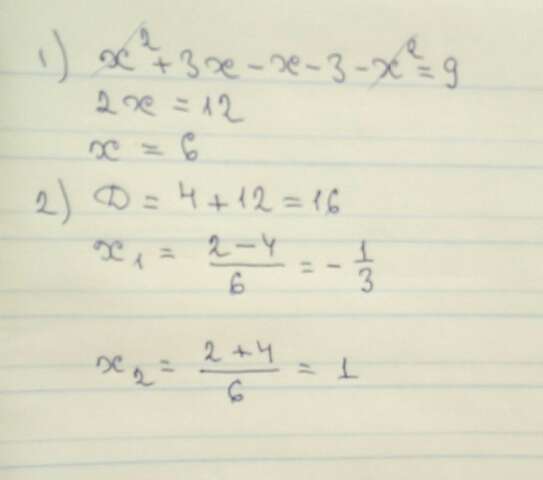 1) x² + 3x - x - 3 - x² = 9
2x = 12
x = 6
2) D = 4 + 12 = 16
x₁ = (2 - 4)/6 = - 1/3
x₂ = (2 + 4)/6 = 1